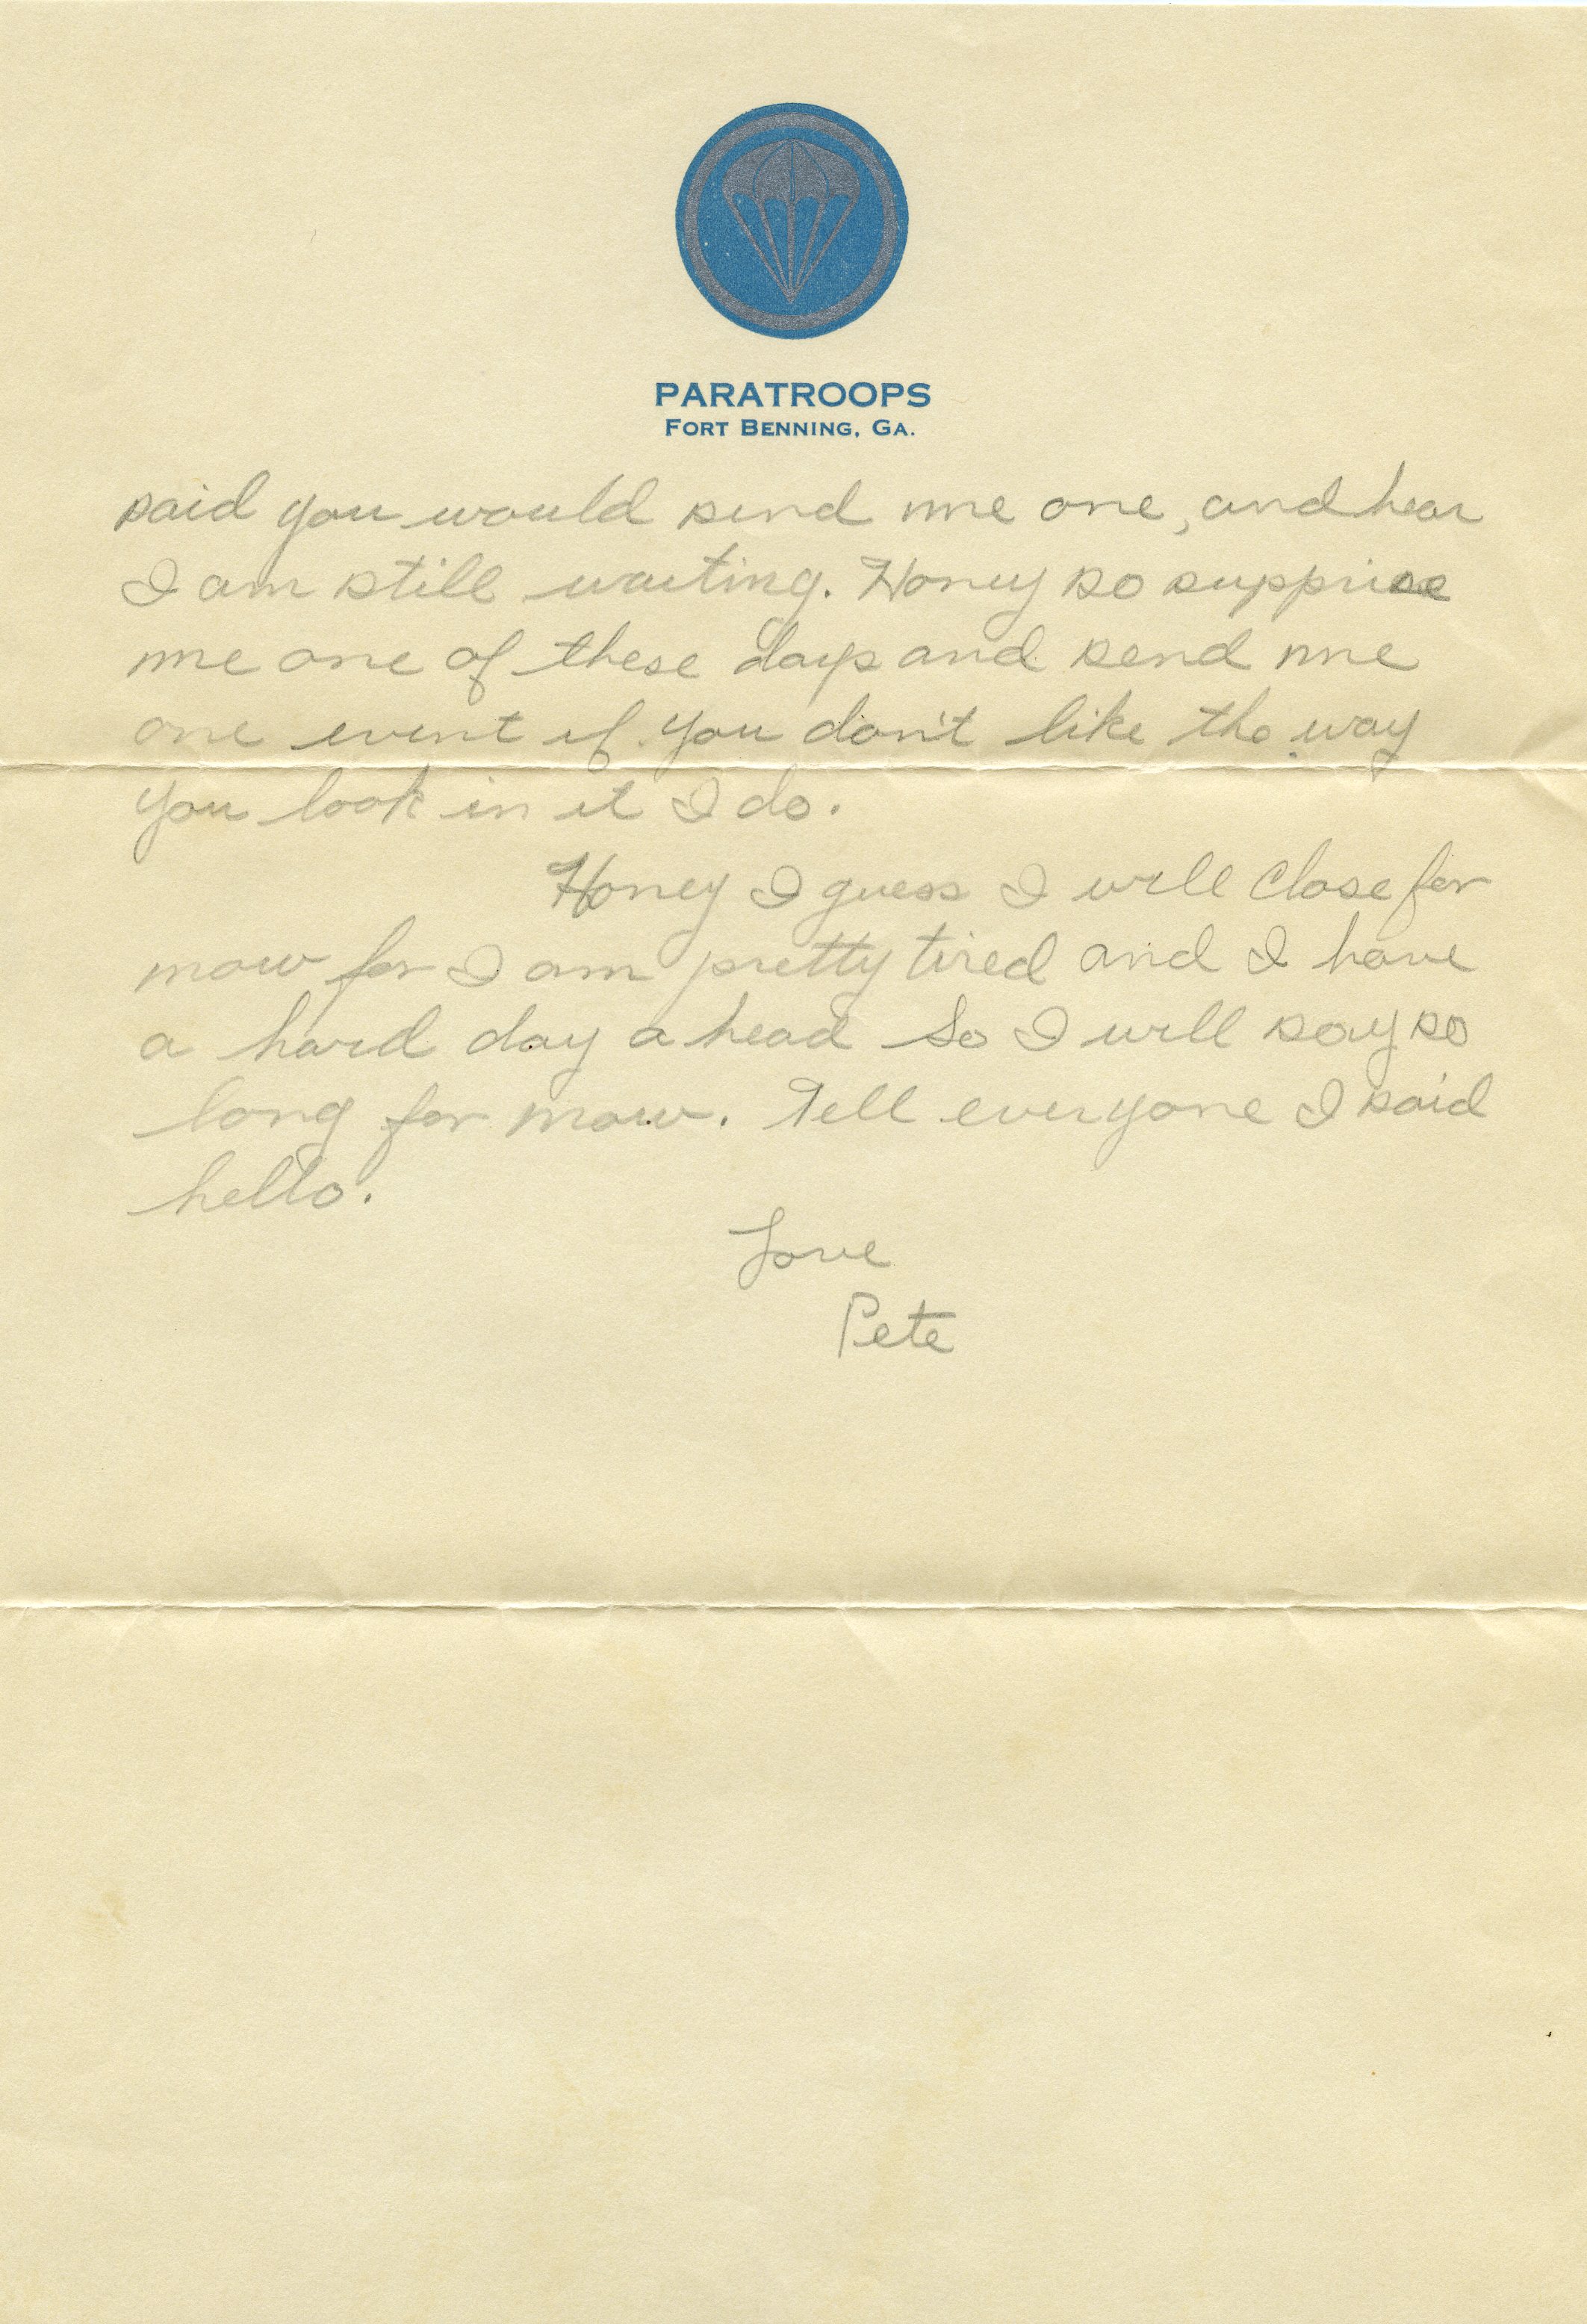 PARATROOPS
FORT BENNING, GA.
said you would send me one, and hear
I am still waiting. Honey so supprise
me one of these days and send me
one event if you don't like the way
you look in it I do.
Honey I guess I will close for
now for I am pretty tired and I have
a hard day a head so I will say so
long for now. Tell everyone I said
hello.
Love
Pete